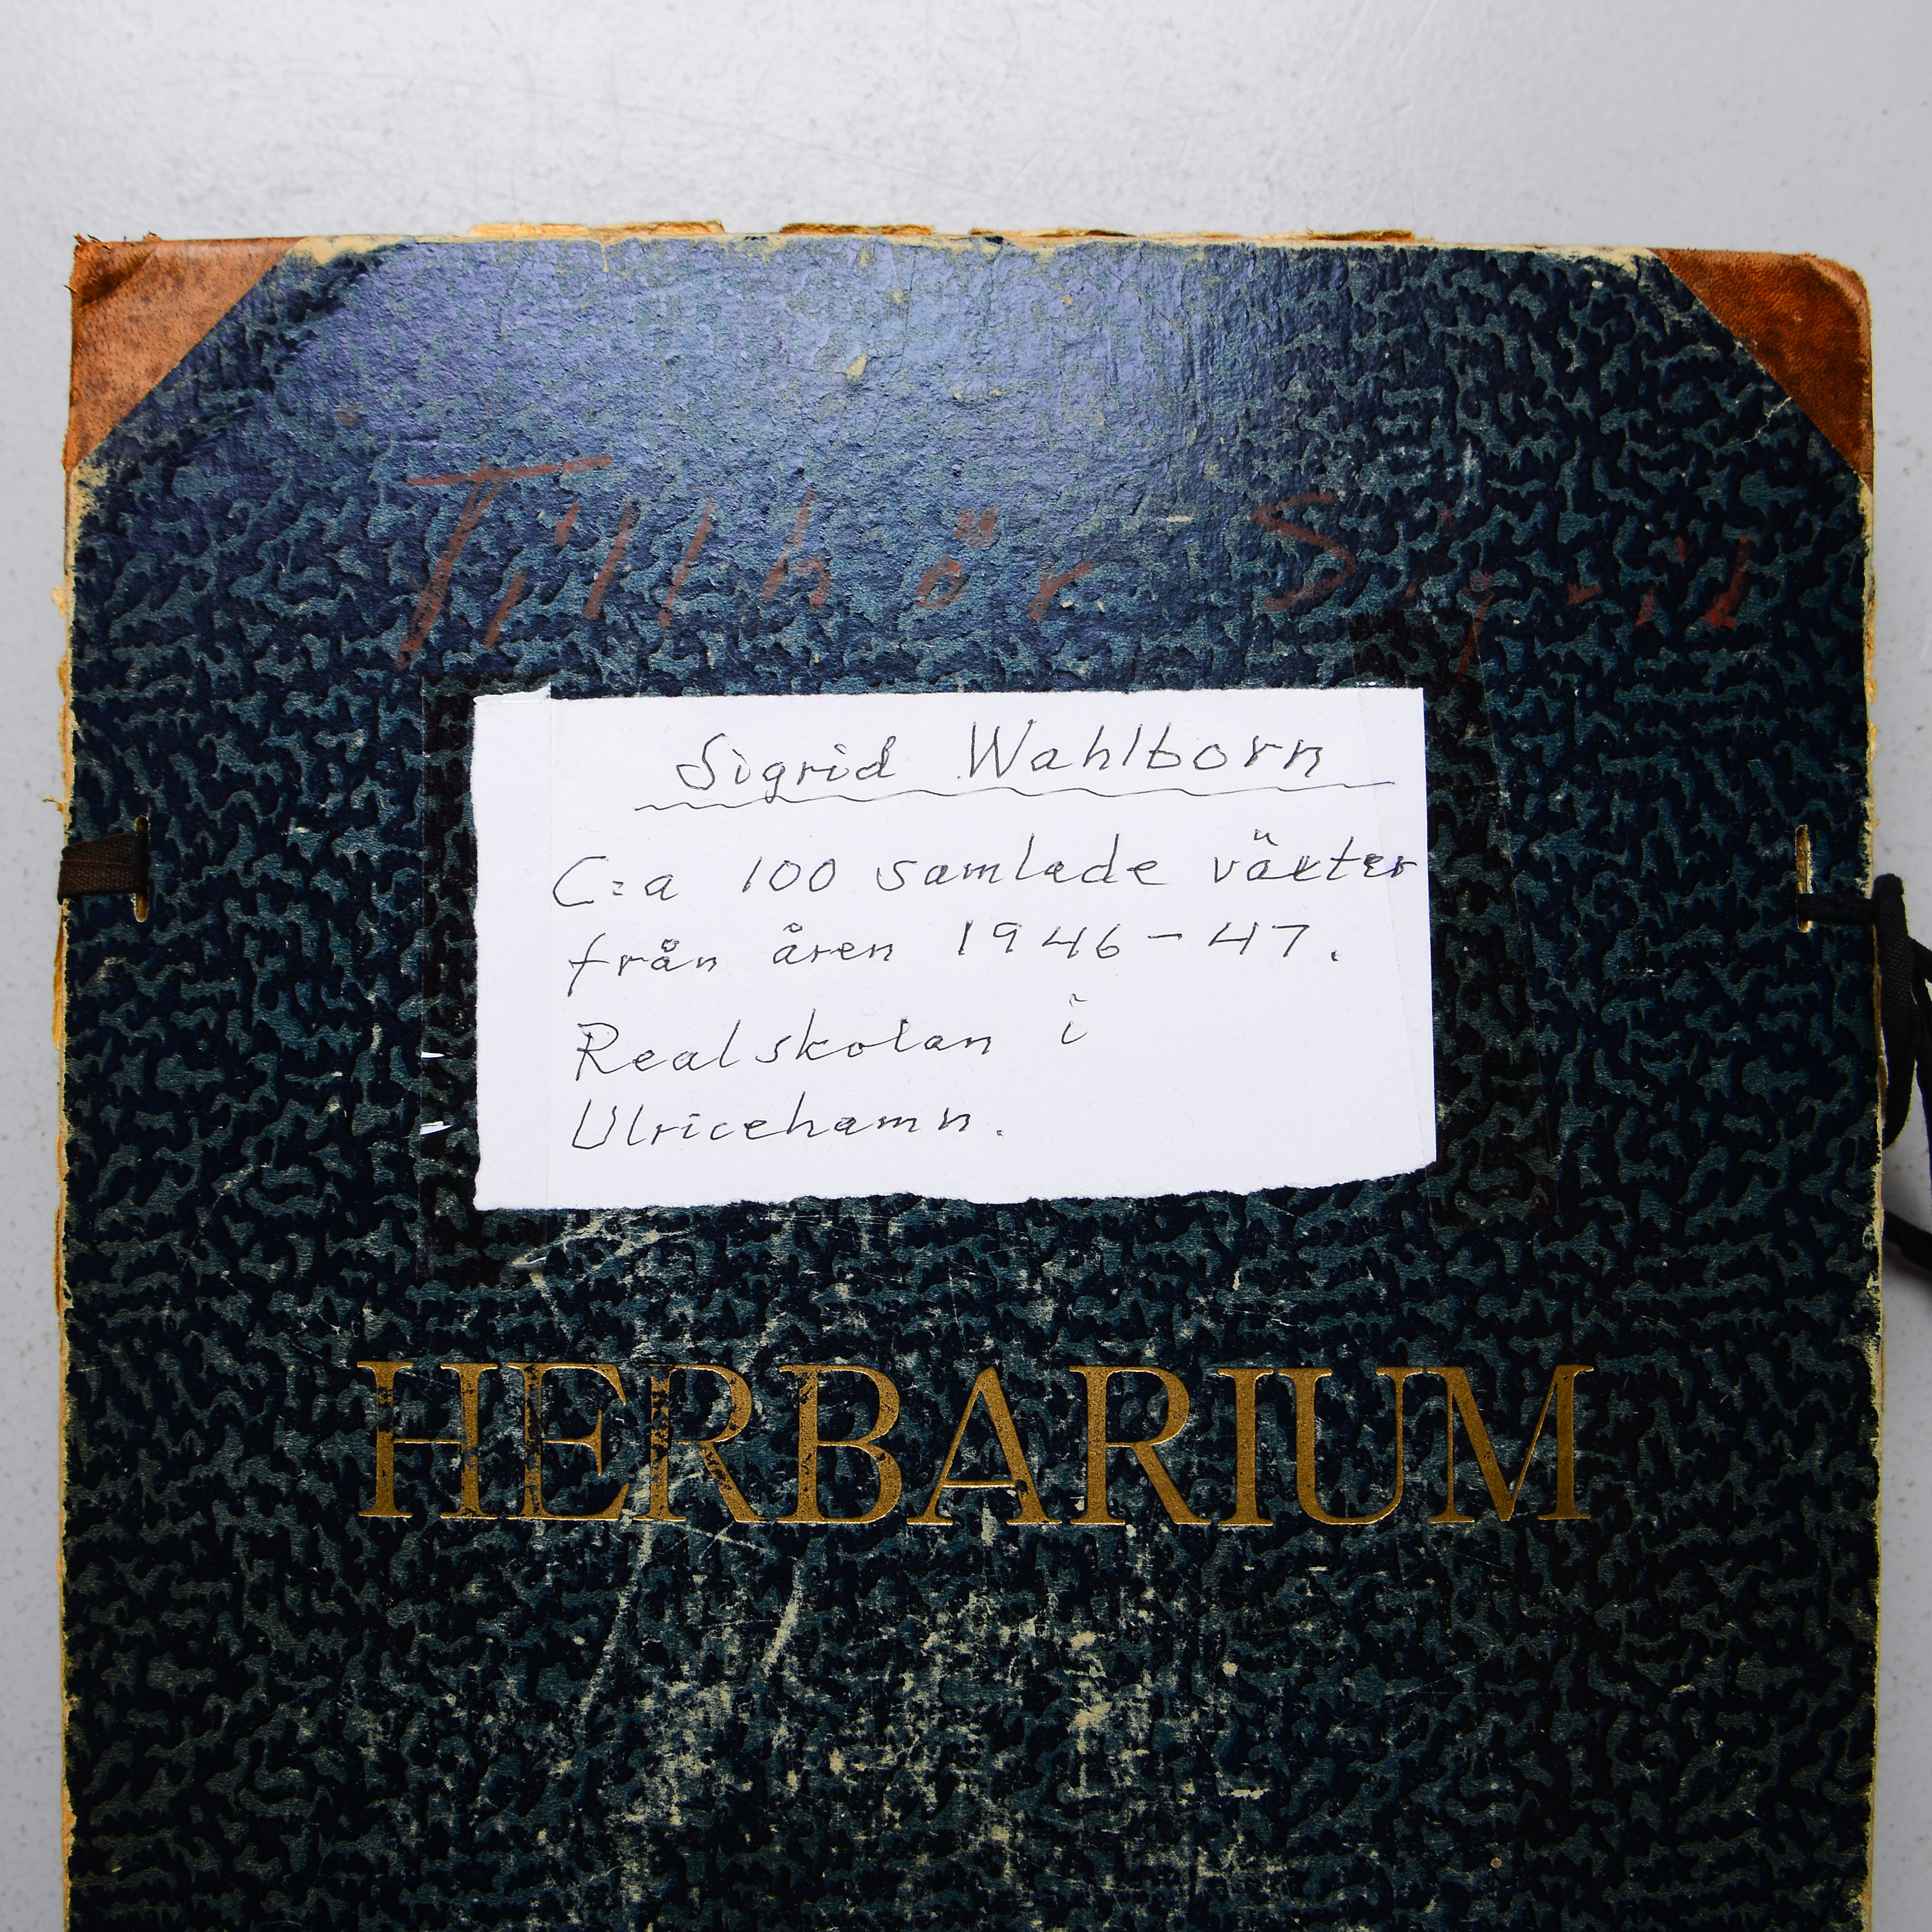 Tillhör Sigrid
Sigrid Wahlborn
C:a 100 samlade växter
från åren 1946-47.
Realskolan i
Ulricehamn.
HERBARIUM